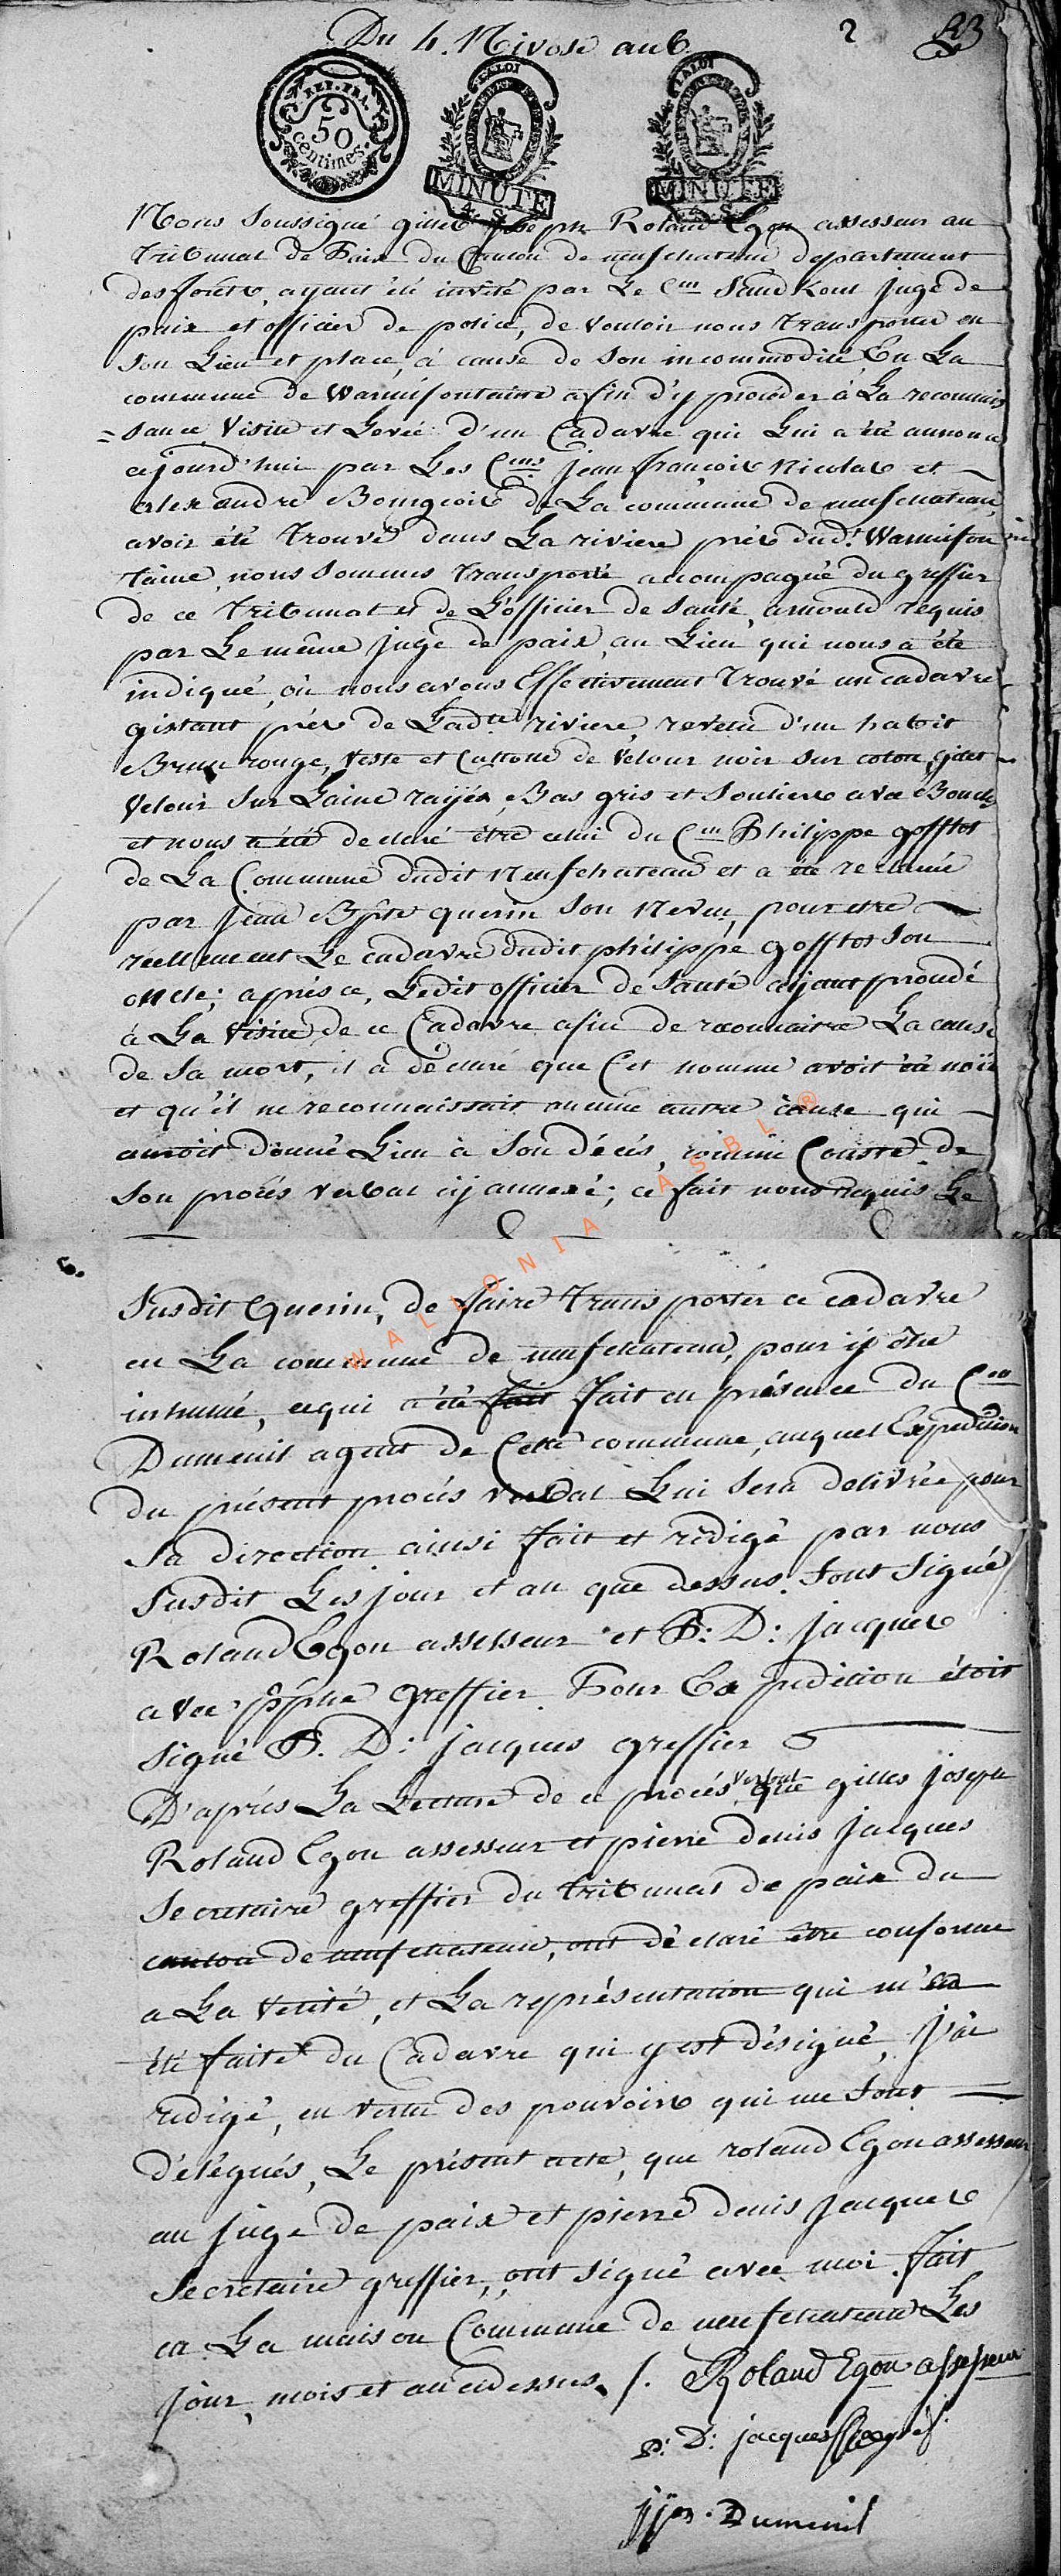 Du 4. Nivose an 6
2
33
REP. FRA.
50
centimes.
LA LOI
MINUTE
LA LOI
MINUTE
Nous Soussigné gilles joseph Roland Egon assesseur au
Tribunal de Paix du Canton de neufchateau departement
des forêts, ayant été invité par Le Cen Sandkoul juge de
paix et officier de police, de vouloir nous transporter en
Son Lieu et place, à cause de Son incommodité En La
commune de Warmifontaine afin d'y procéder à La reconnois
= sance, Visite et Levée d'un Cadavre qui Lui a été annoncé
cejourd'hui par Les Cens jean françois Nicolas et
alexandre Bourgeois de La commune de neufchateau,
avoir été trouvé dans La riviere près dudt. Warmifon
taine, nous Sommes transporté acompagné du greffier
de ce Tribunal et de L'officier de Santé, arnould requis
par Le même juge de paix, au Lieu qui nous a été
indiqué, où nous avons Effectivement trouvé un cadavre
gistant près de Ladte riviere, revetu d'un haboit
Brun rouge, Veste et Cullotte de Velour noir Sur coton, gilet
Velour Sur Laine raijés, Bas gris et Souliers avec Boucles
et nous a été declaré être celui du Cen Philippe gofflot
de La Commune dudit Neufchateau et a été reclamé
par Jean Bpte querin Son Neveu, pour etre
réellement Le cadavre dudit philippe gofflot Son
oncle; après ce, Ledit officier de Santé aijant procédé
à La Visite de ce Cadavre afin de reconnaitre La cause
de Sa mort, il a déclaré que Cet homme avoit été noïé
et qu'il ne reconnaissait aucune autre cause qui
auroit donné Lieu à Son décés, comme Conste de
Son procés verbal cij annexé; ce fait nous requis Le
Susdit Querin, de faire transporter ce cadavre
en La commune de neufchateau, pour ij être
inhumé, cequi a été fait fait en présence du Cen
Dumenil agent de Cette commune, auquel Expedition
du présent procés verbal Lui Sera delivrée pour
Sa direction ainsi fait et rédigé par nous
Susdit Les jour et an que dessus. Sont Signé
Roland Egon assesseur et P: D: jacques
avec pphe Greffier Pour Expedition étoit
Signé P. D: jacques greffier
D'aprés La Lecture de ce procés verbal que gilles joseph
Roland Egon assesseur et pierre denis jacques
Secretaire greffier du tribunal de paix du
canton de neufchateau, ont déclaré être conforme
a La Verité, et La représentation qui m'en a
été faite du Cadavre qui y est désigné, J'ai
rédigé, en vertu des pouvoirs qui me Sont
délégués, Le présent acte, que roland Egon assesseur
au juge de paix et pierre denis jacques
Secretaire greffier, ont signé avec moi. fait
en La maison Commune de neufchateau Les
jour, mois et an cidessus. /. Roland Egon assesseur
P: D: jacques
Dumenil
WALLONIA ASBL ®